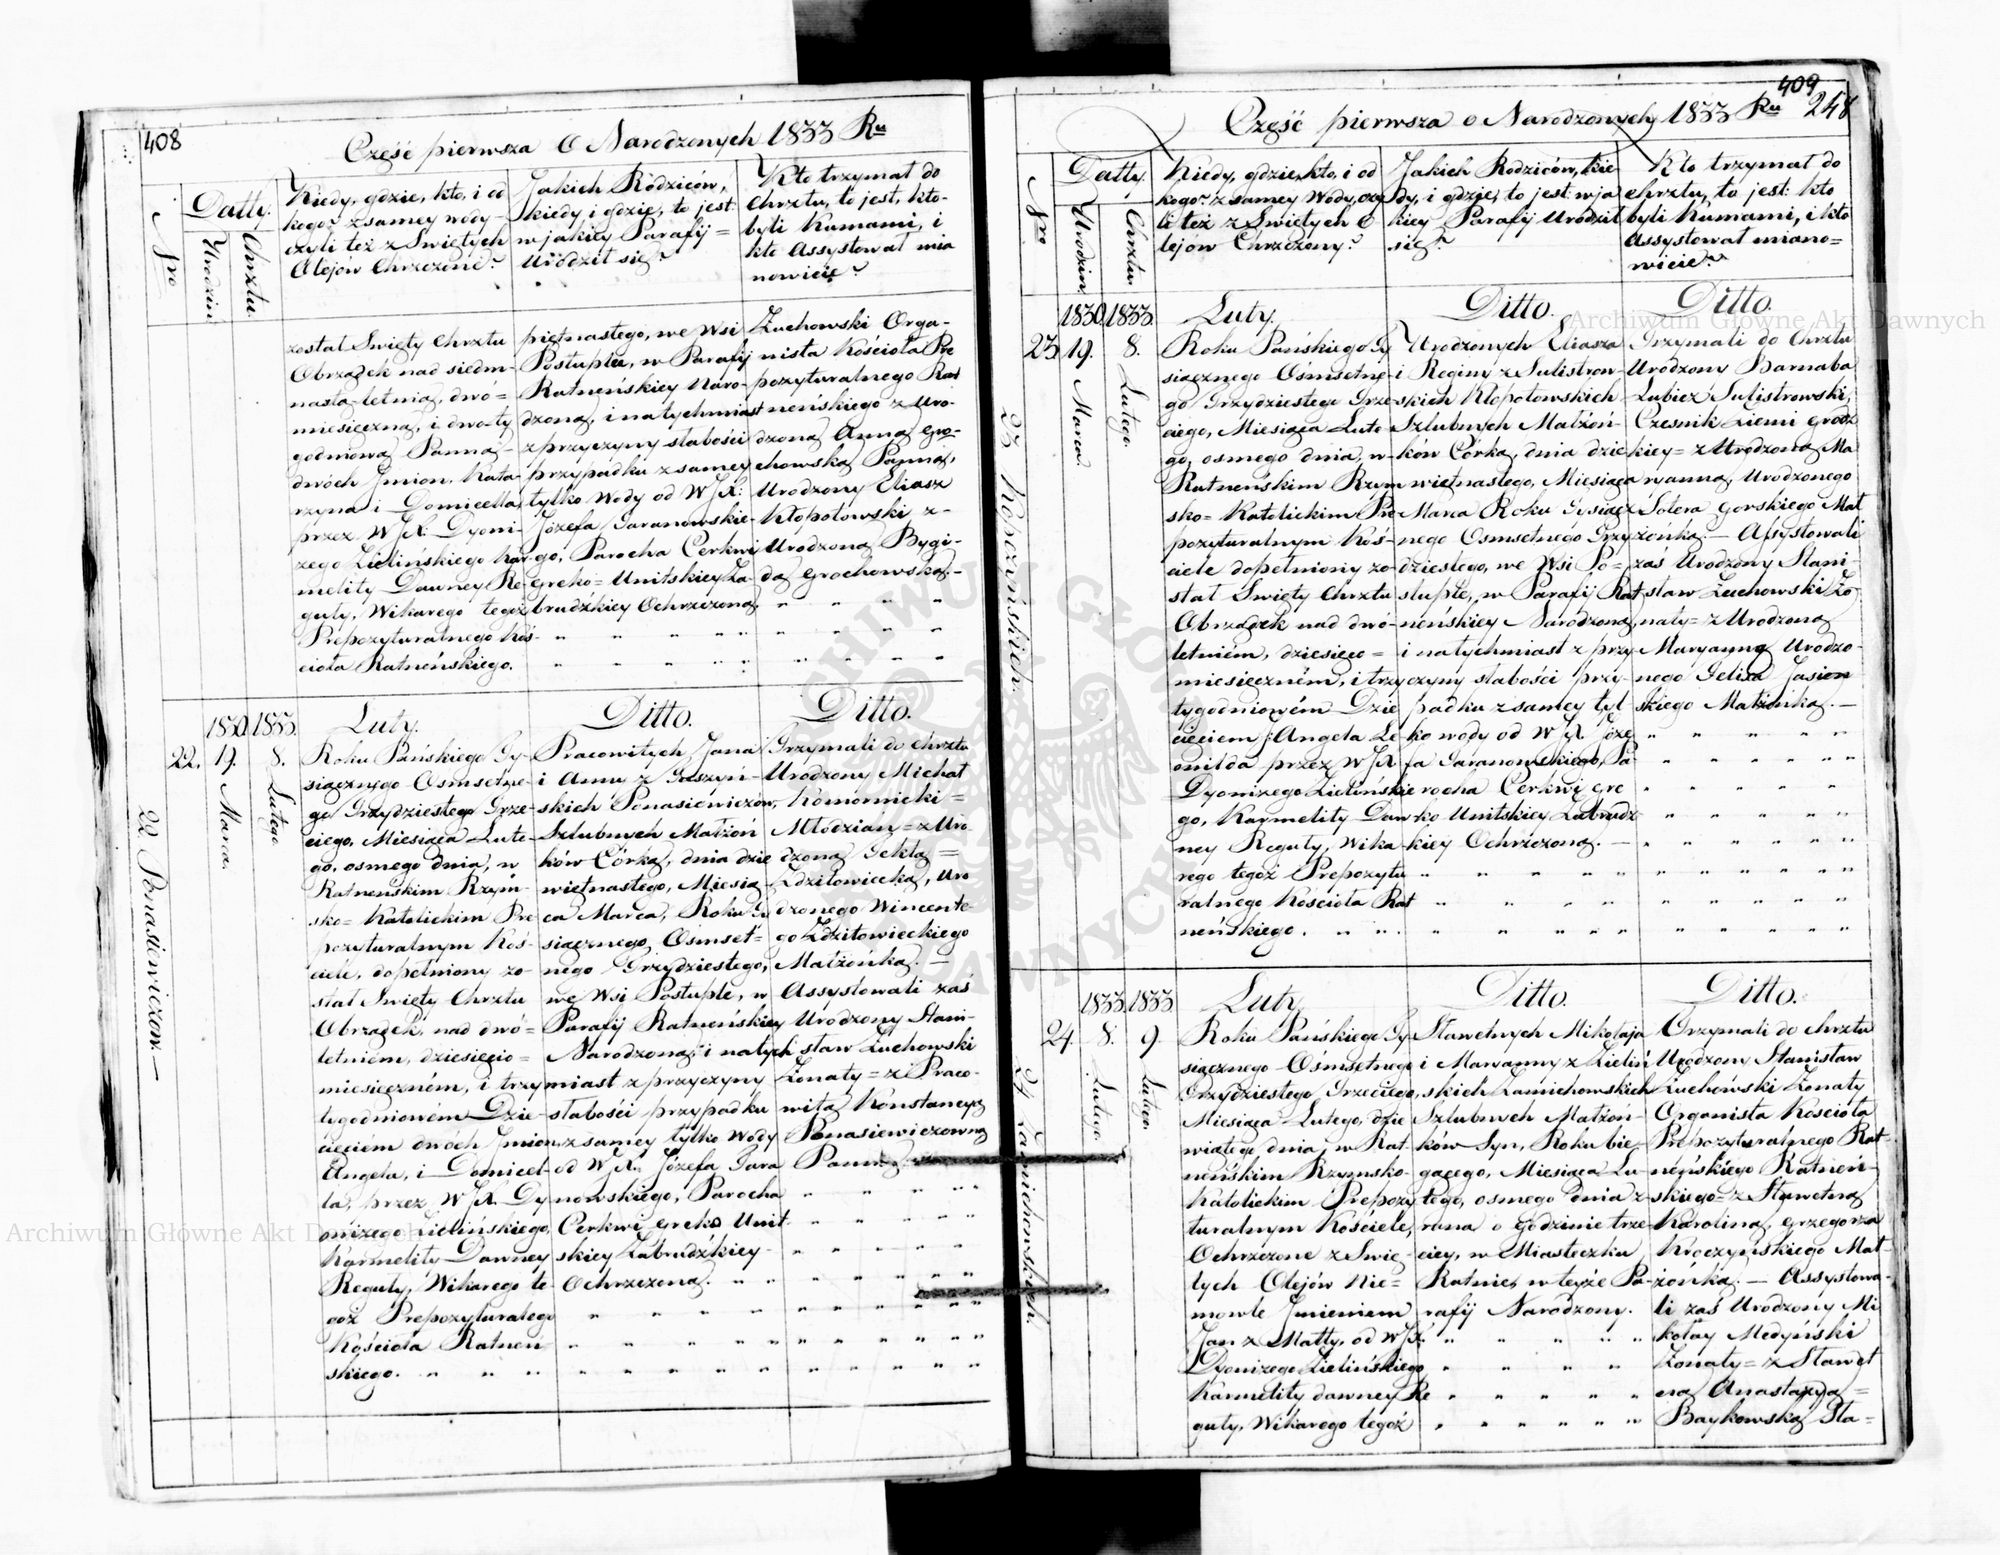 408
Część pierwsza O Narodzonych 1833 Ru
Nro
Datty.
Urodzin.
Chrztu.
Kiedy, gdzie, kto, i od
kogo? z samey wody
czyli też z Świętych
Olejów Chrzczone?
Jakich Rodziców,
kiedy i gdzie, to jest
w jakiey Parafij =
Urodził się?
Kto trzymał do
Chrztu, to jest, kto-
byli Kumami, i
kto Assystował mia
nowicie?
został Swięty Chrztu
Obrządek nad siedm-
nasto-letnią, dwó=
miesięczną, i dwo-ty
godniową Panną-
dwóch Jmion, Kata-
rzyna i Domicella,
przez W JX. Dyoni-
zego Zielińskiego Kar-
melity Dawney Re-
guły, Wikarego tegoż
Prepozyturalnego Koś-
cioła Ratneńskiego.
piętnastego, we Wsi
Postuplu, w Parafij
Ratneńskiey Naro-
dzoną, i natychmiast
z przyczyny słabości
przypadku z samey
tylko Wody od W JX:
Józefa Taranowskie-
go, Parocha Cerkwi
Greko=Unitskiey Za-
brudzkiey Ochrzczoną.
Żuchowski Orga-
nista Kościoła Pre
pozyturalnego Rat
neńskiego z Uro-
dzoną Anną Gro-
chowską Panną,
Urodzony Eliasz
Kłopotowski z-
Urodzoną Brygi-
dą Grochowską.-
22 Ponasiewiczow.-
1830. 1833.
22. 19. 8.
Marca.
Lutego
Luty.
Roku Pańskiego Ty-
siącznego Osmsetne-
go Trzydziestego Trze-
ciego, Miesiąca Lute-
go, osmego dnia, w
Ratneńskim Rzym-
sko=Katolickim Pre
pozyturalnym Koś-
ciele, dopełniony zo-
stał Swięty Chrztu
Obrządek, nad dwó=
letniém, dziesięcio=
miesięczném, i trzy
tygodniowém Dzie-
cięciém dwóch Jmion,
Angela, i Domicel-
la, przez W JX. Dy
onizego Zielińskiego,
Karmelity Dawney
Reguły, Wikarego te-
goż Prepozyturalego
Kościoła Ratneń-
skiego.
Ditto.
Pracowitych Jana
i Anny z Greszyń-
skich Ponasiewiczów,
Szlubnych Małżon
ków Córką, dnia dzie
więtnastego, Miesią
ca Marca, Roku Ty
siącznego, Osmset=
nego Trzydziestego,
we Wsi Postuple, w
Parafij Ratneńskiey
Narodzoną, i natych
miast z przyczyny
słabości przypadku
z samey tylko Wody
od W JX. Józefa Tara
nowskiego, Parocha
Cerkwi Greko Unit-
skiey Zabrudzkiey-
Ochrzczoną.
Ditto.
Trzymali do Chrztu
Urodzony Michał
Komornicki=
Młodzian=z Uro-
dzoną Teklą=
Zdzitowiecką, Uro
dzonego Wincente-
go Zdzitowieckiego
Małżonką.-
Assystowali zaś
Urodzony Stani-
sław Żuchowski
Żonaty=z Praco-
witą Konstancyą
Ponasiewiczowną
Panną.
409
248
Część pierwsza o Narodzonych 1833 Ru
Nro
Datty.
Urodzin.
Chrztu.
Kiedy, gdzie, kto, i od
kogo? z samey Wody, czy
li też z Świętych O
lejów Chrzczony?
Jakich Rodziców, kie
dy, i gdzie, to jest w ja
kiey Parafij Urodził
się?
Kto trzymał do
chrztu, to jest: kto
byli Kumami, i kto
Assystował miano=
wicie?
23 Kłopotowskich.
1830. 1833.
23 19. 8.
Marca
Lutego.
Luty.
Roku Pańskiego Ty
siącznego Osmsetne-
go Trzydziestego Trze
ciego, Miesiąca Lute
go, osmego dnia, w-
Ratneńskim Rzym
sko=Katolickim Pre
pozyturalnym Koś-
ciele dopełniony zo
stał Swięty Chrztu
Obrządek nad dwó-
letniém, dziesięcio=
miesięczném, i trzy
tygodniowém Dzie
cięciem: Angela Le
onilda przez W JX
Dyonizego Zielińskie
go, Karmelity Daw
ney Reguły, Wika
rego tegoż Prepozytu
ralnego Kościoła Rat
neńskiego.
Ditto.
Urodzonych Eliasza
i Reginy z Sulistrow-
skich Kłopotowskich
Szlubnych Małżoń-
ków Córką, dnia dzie
więtnastego, Miesiąca
Marca Roku Tysiącz
nego Osmsetnego Trzy
dziestego, we Wsi Po=
stuple, w Parafij Rat
neńskiey Narodzoną,
i natychmiast z przy
czyny słabości przy-
padku z samey tyl
ko wody od W JX. Józe
fa Taranowskiego, Pa
rocha Cerkwi Gre
ko Unitskiey Zabrudz
kiey Ochrzczoną.-
Ditto.
Trzymali do Chrztu
Urodzony Barnaba
Lubicz Sulistrowski,
Czesnik Ziemi Grodz
kiey=z Urodzoną Ma
ryanną, Urodzonego
Sotera Gorskiego Mał
żonką.-Assystowali
zaś Urodzony Stani-
sław Żuchowski Żo
naty=z Urodzoną
Maryanną Urodzo-
nego Felixa Jasień
skiego Małżonką.-
24 Zamiechowskich.
1833. 1833.
24. 8. 9.
Lutego
Lutego
Luty.
Roku Pańskiego Ty
siącznego Osmsetnego
Trzydziestego Trzeciego,
Miesiąca Lutego, dzie
wiątego dnia, w Rat-
neńskim Rzymsko-
Katolickim Prepozy
turalnym Kościele,
Ochrzczone z Swię-
tych Olejów Nie=
mowle Jmieniem
Jan z Matty, od W JX.
Dyonizego Zielińskiego
Karmelity dawney Re
guły, Wikarego tegoż
Ditto.
Sławetnych Mikołaja
i Maryanny z Zieliń
skich Zamiechowskich
Szlubnych Małżon-
ków Syn, Roku bie-
gącego, Miesiąca Lu-
tego, osmego dnia z
rana o godzinie trze-
ciey, w Miasteczku
Ratnie, w teyże Pa-
rafij Narodzony.
Ditto.
Trzymali do chrztu
Urodzony Stanisław
Żuchowski Żonaty
Organista Kościoła
Prepozyturalnego Rat-
neńskiego Ratneń-
skiego=z Sławetną
Karoliną, Grzegorza
Kroczyńskiego Mał-
żonką.-Assystowa-
li zaś Urodzony Mi
kołay Medyński
Żonaty=z Sławet
ną Anastazyą=
Baykowską Sta=
Archiwum Główne Akt Dawnych
Archiwum Główne Akt Dawnych